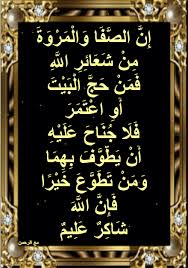 إِنَّ الصَّفَا وَالْمَرْوَةَ
مِنْ شَعَائِرِ اللَّهِ
فَمَنْ حَجَّ الْبَيْتَ
أَوِ اعْتَمَرَ
فَلَا جُنَاحَ عَلَيْهِ
أَنْ يَطَّوَّفَ بِهِمَا
وَمَنْ تَطَوَّعَ خَيْرًا
فَإِنَّ اللَّهَ
شَاكِرٌ عَلِيمٌ
مع الرحمن